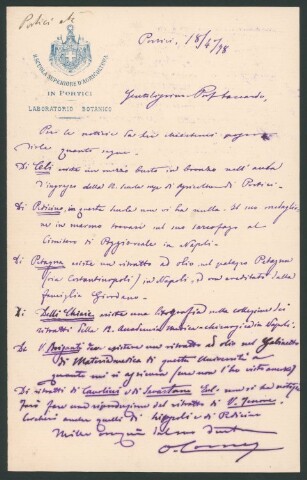 Portici
R. SCUOLA SUPERIORE D'AGRICOLTURA
IN PORTICI
LABORATORIO BOTANICO
Portici, 18/4/98
Gentilissimo Prof. Saccardo,
Per le notizie la dia chiestemi
quanto segue.
Di Lèti esiste un mezzo busto in bronzo nell'aula
d'ingresso della R. Scuola sup. di Agricoltura di Portici.
Di Pedicino, in questa Scuola non vi ha nulla. Il suo medaglio-
ne in marmo trovasi sul suo sarcofago al
Cimitero di Poggioreale in Napoli.
Di Petagna esiste un ritratto ad olio nel palazzo Petagna
(via Costantinopoli) in Napoli, ed ora ereditato dalla
famiglia Giordano.
Di Delle Chiaie esiste una litografia nella collezione dei
ritratti della R. Accademia medico-chirurgica di Napoli.
De V. Briganti esistere un ritratto ad olio nel Gabinetto
di Materia medica di questa Università
quanto mi si assicura (ma non l'ho visto ancora)
Di ritratti di Cavolini e di Sebastiano non si ha notizia.
Farò fare una riproduzione del ritratto di V. Tenore.
anche quelli di e di Pedicino
Mille
O. Comes